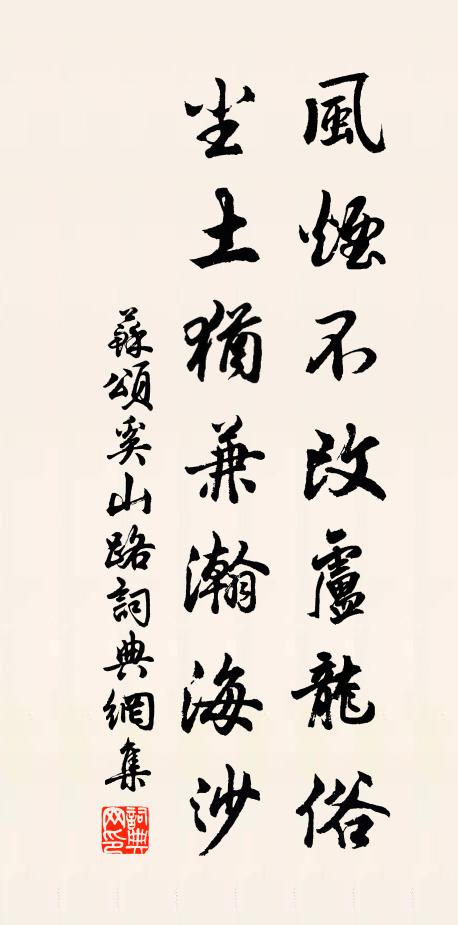 風煙不改盧龍俗
塵土猶兼瀚海沙
蘇頌奚山路詞典網集
詞典網印